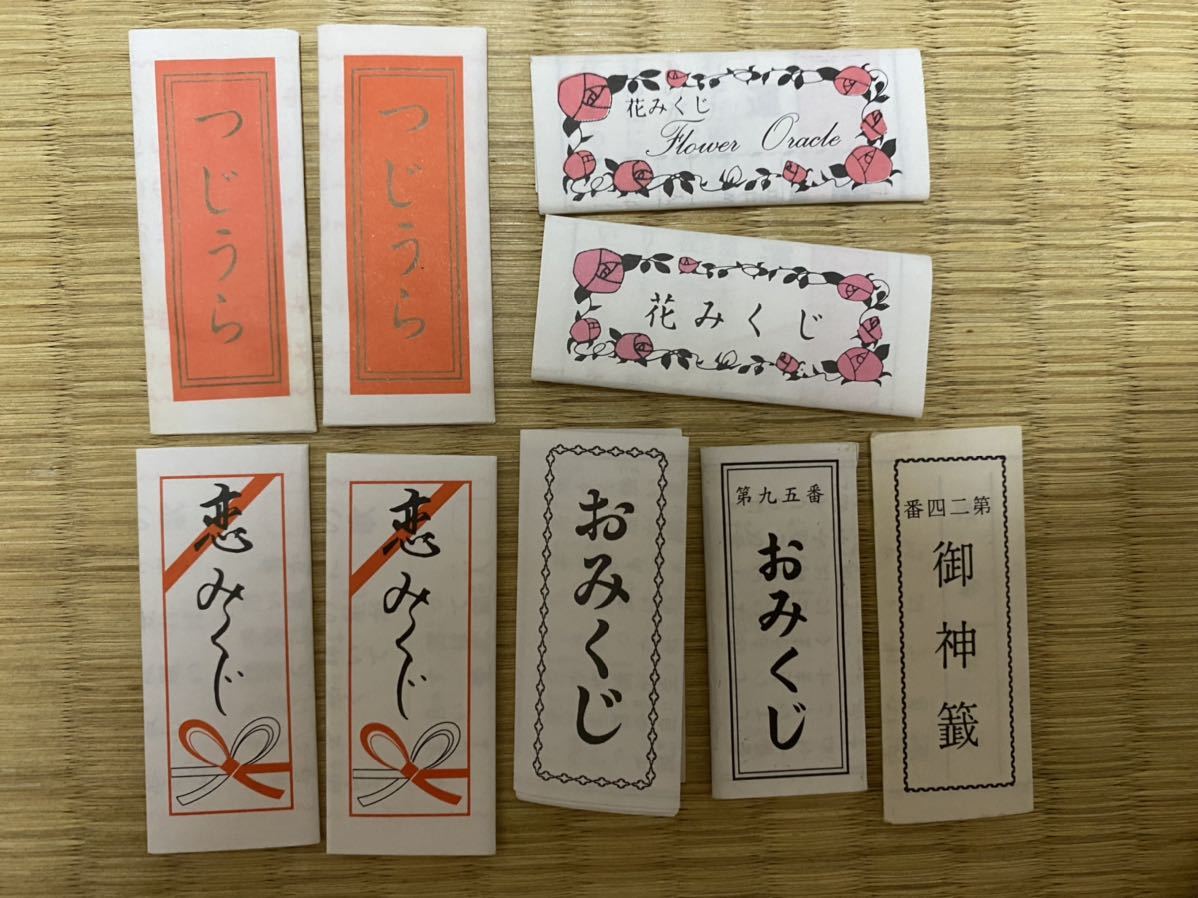 つじうら
つじうら
花みくじ
Flower Oracle
花みくじ
恋みくじ
恋みくじ
おみくじ
第九五番
おみくじ
第二四番
御神籤